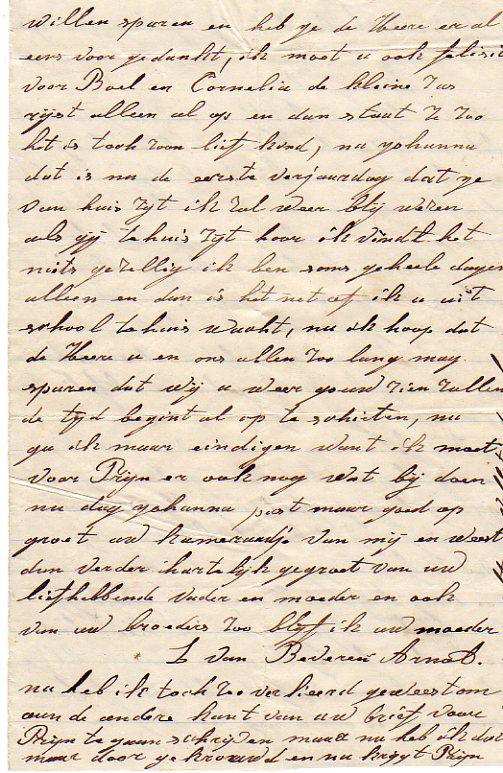 willen sparen en heb ge de Heere er al
eens voor gedankt, ik moet u ook felisit
voor Boel en Cornelia de kleine Jas
rijst alleen al op en dan staat ze zoo
het is toch zoon lief kind, nu yohanna
dat is nu de eerste verjaardag dat ge
van huis zyt ik zal weer bly weren
als gy tehuis zyt hoor ik vindt het
niets gezellig ik ben soms geheele dagen
alleen en dan is het net of ik u uit
school tehuis wacht, nu ik hoop dat
de Heere u en ons allen zoo lang mag
sparen dat wij u weer gouw zien zullen
de tyd begint al op te schieten, nu
ga ik maar eindigen want ik moet
voor Prijn er ook nog wat bij doen
nu dag yohanna past maar goed op
groet uw kameraadje van mij en weest
dan verder hartelyk gegroet van uw
liefhebbende vader en moeder en ook
van uw broeders zoo blyf ik uw moeder
L van Beveren Arnot.
nu heb ik toch zoo verkeerd geweest om
aan de andere kant van uw brief voor
Prijn te gaan schrijven maar nu heb ik dat
maar door gekrouwd en nu krijgt Prijn